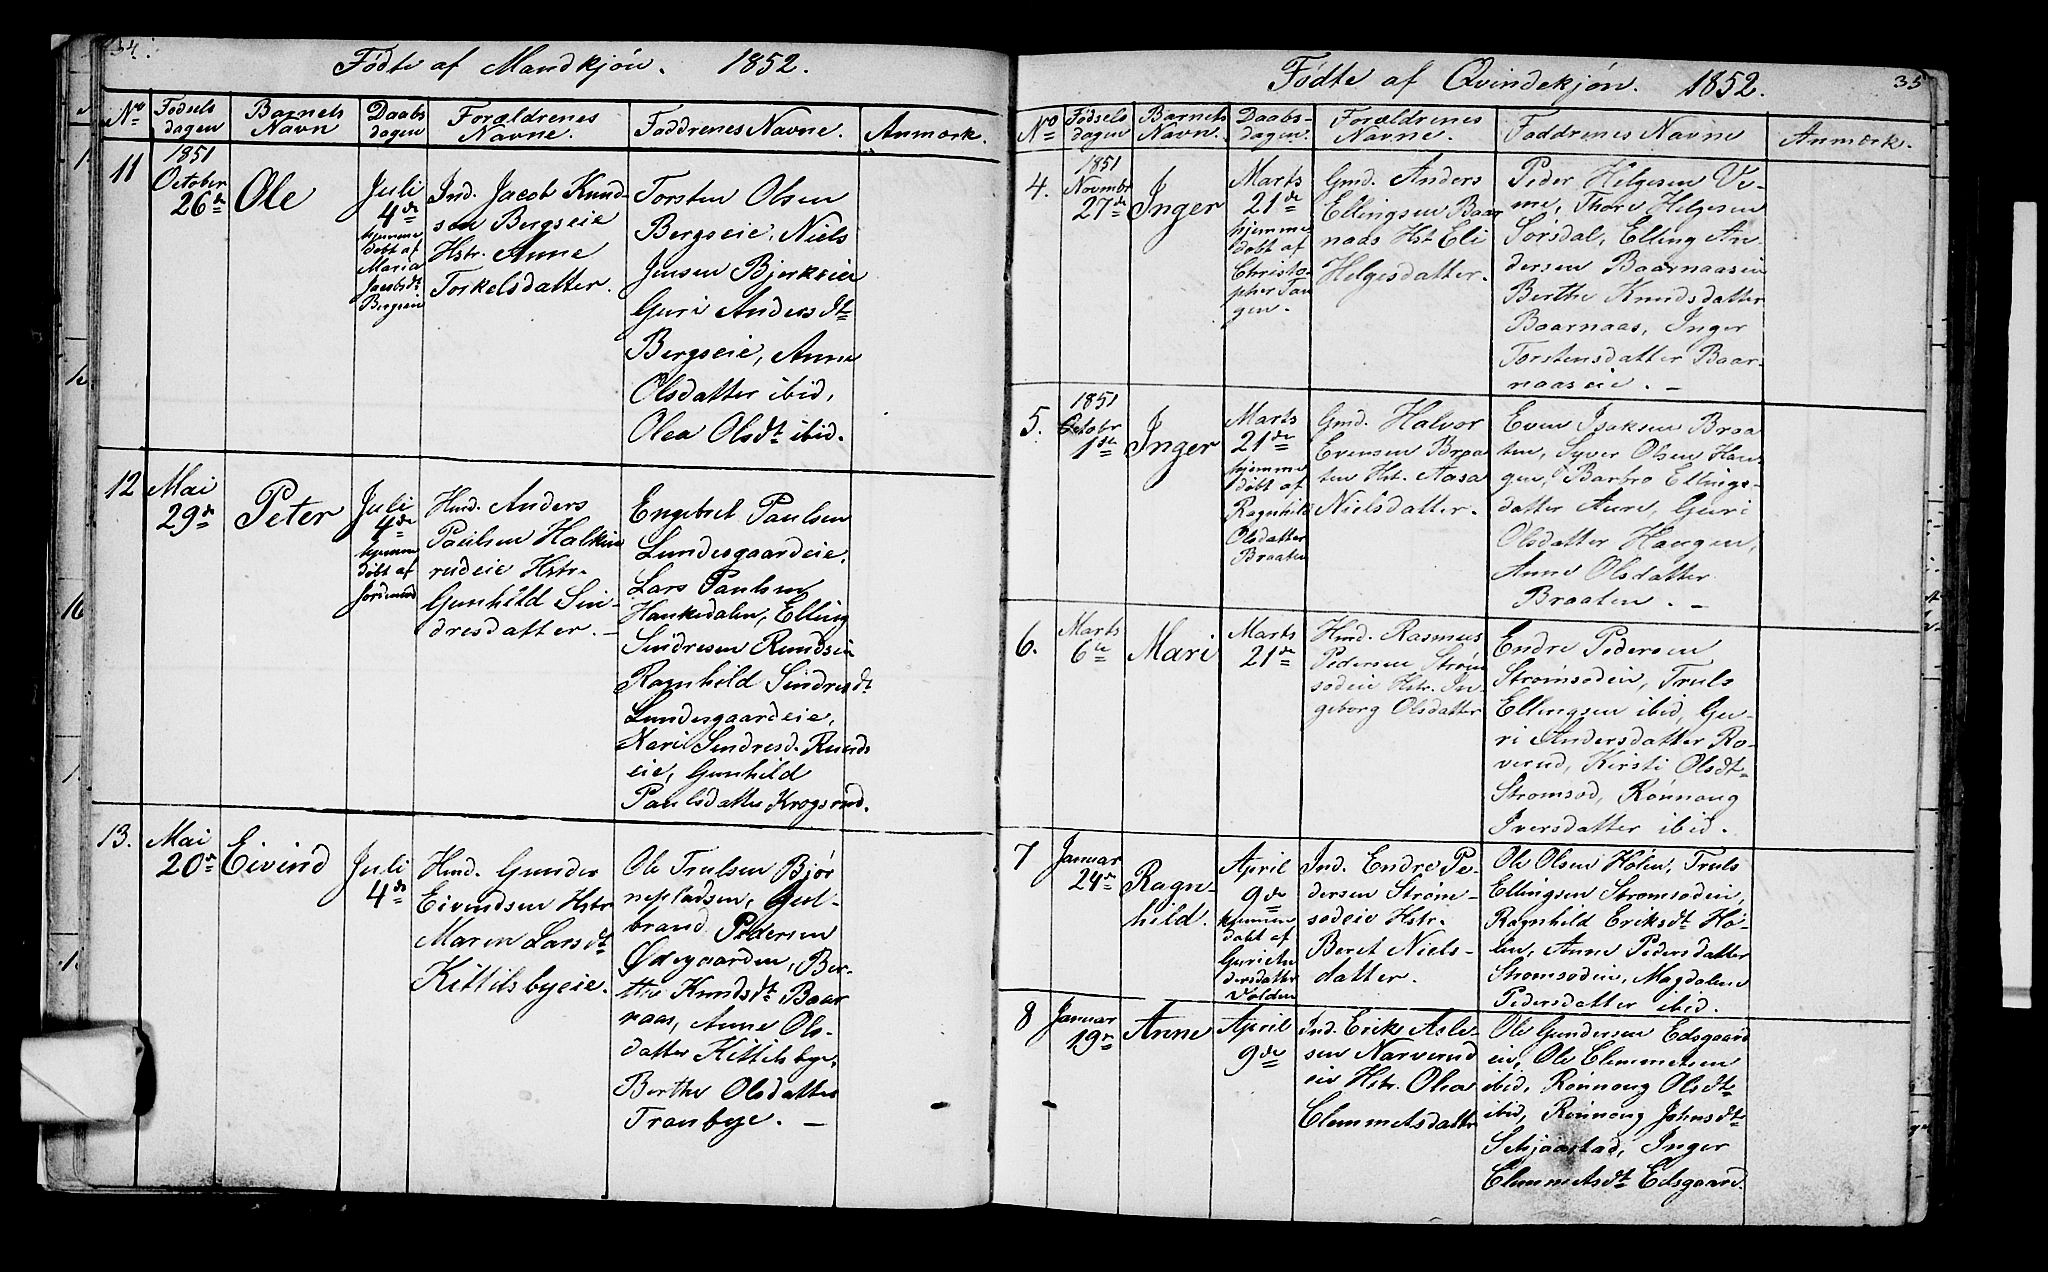 34.
Fødte af Mandkjøn. 1852.
No
Fødsels
dagen
Barnets
Navn
Daabs
dagen
Forældrenes
Navne.
Faddrenes Navne.
Anmærk.
11
1851
October
26de
Ole
Juli
4de
hjemme
døbt af
Maria
Jacobsdt
Bergseie
Ind. Jacob Knud-
sen Bergseie
Hstr. Anne
Torkelsdatter.
Torsten Olsen
Bergseie, Niels
Jensen Bjerkeeie
Guri Andersdt
Bergseie, Anne
Olsdatter ibid,
Olea Olsdt ibid.
12
Mai
29de
Peter
Juli
4de
hjemme
døbt af
Jordemod
Hmd. Anders
Paulsen Halkin
rudeie Hstr.
Gunhild Sin-
dresdatter.
Engebret Paulsen
Lundesgaardeie,
Lars Paulsen
Haukedalen, Elling
Sindresen Rundseie
Ragnhild Sindresdt
Lundesgaardeie,
Kari Sindresd. Runds
eie, Gunhild
Paulsdatter Krogsrud.
13.
Mai
20de
Eivind
Juli
4de
Hmd. Gunder
Eivindsen Hstr
Maren Larsdt
Kittilsbyeie.
Ole Trulsen Bjør
nepladsen, Gul-
brand Pedersen
Ødegaarden, Ber-
the Knudsdt Baar
naas, Anne Ols-
datter Kittilsbye,
Berthe Olsdatter
Tranbye. —
35
Fødte af Qvindekjøn. 1852.
No
Fødsels
dagen
Barnets
Navn.
Daabs-
dagen.
Forældrenes
Navne.
Faddrenes Navne
Anmærk.
4.
1851
Novmbr
27de
Inger
Marts
21de
hjemme
døbt af
Christo-
pher Tan
gen.
Gmd. Anders
Ellingsen Baar
naas Hst Eli
Helgesdatter.
Peder Helgesen Ve-
me, Thore Helgesen
Sørsdal, Elling An-
dersen Baarnaaseie
Berthe Knudsdatter
Baarnaas, Inger
Torstensdatter Baar-
naaseie. —
5.
1851
Octobr
1ste
Inger
Marts
21de
hjemme
døbt af
Ragnhild
Olsdatter
Braaten
Gmd. Halvor
Evensen Braa
ten Hst. Aasa
Nielsdatter.
Even Isaksen Braa
ten, Syver Olsen Hau-
gen, Barbro Ellings-
datter Aure, Guri
Olsdatter Haugen,
Anne Olsdatter
Braaten. —
6.
Marts
6te
Mari
Marts
21de
Hmd. Rasmus
Pedersen Strøm
sødeie Hstr. In
geborg Olsdatter
Endre Pedersen
Strømsødeie, Truls
Ellingsen ibid, Gu-
ri Andersdatter Ro-
verud, Kirsti Olsdt
Strømsød, Rønnoug
Iversdatter ibid.
7
Januar
24de
Ragn-
hild.
April
9de
hjemme
døbt af
Guri An
dersdatter
Volden
Ind. Endre Pe-
dersen Strøm-
sødeie Hstr.
Beret Niels-
datter.
Ole Olsen Hølen, Truls
Ellingsen Strømsødeie,
Ragnhild Eriksdt Hø-
len, Anne Pedersdatter
Strømsødeie, Magdalene
Pedersdatter ibid.
8
Januar
19de
Anne
April
9de
Ind. Erik Asle-
sen Narverud
eie Hstr. Olea
Clemmetsdatter
Ole Gundersen Edsgaard
en, Ole Clemmetsen
ibid, Rønnoug Olsdt
ibid, Rønnoug Johnsdt
Setsjaastad, Inger
Clemmetsdt Edsgaard.